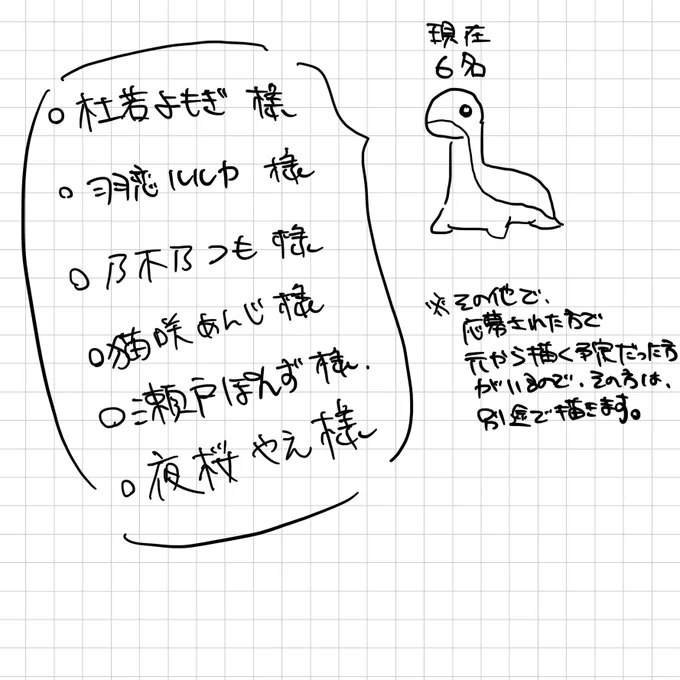 ○ 杜若よもぎ 様
○ 羽恋ルルカ 様
○ 乃木乃つも 様
○ 猫咲あんじ 様
○ 瀬戸ぽんず 様.
○ 夜桜やえ 様
現在
6名
※その他で、
応募された方で
元から描く予定だった方
がいるので、その方は、
別途で描きます。